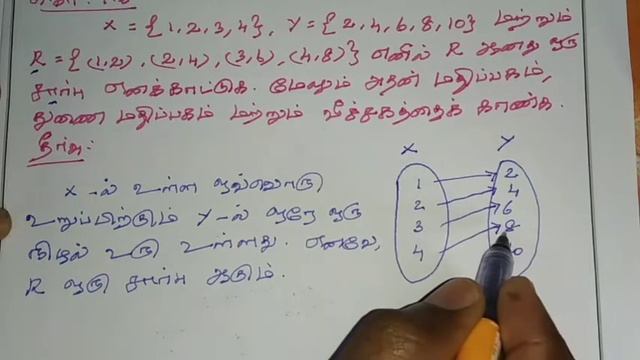 X = {1,2,3,4}, Y = {2,4,6,8,10} மற்றும்
R = {(1,2), (2,4), (3,6), (4,8)} எனில் R ஆனது ஒரு
சார்பு எனக்காட்டுக. மேலும் அதன் மதிப்பகம்,
துணை மதிப்பகம் மற்றும் வீச்சகத்தைக் காண்க.
தீர்வு:
X Y
X -ல் உள்ள ஒவ்வொரு
உறுப்பிற்கும் Y-ல் ஒரே ஒரு
நிழல் உரு உள்ளது. எனவே,
R ஒரு சார்பு ஆகும்.
1 2
2 4
3 6
4 8